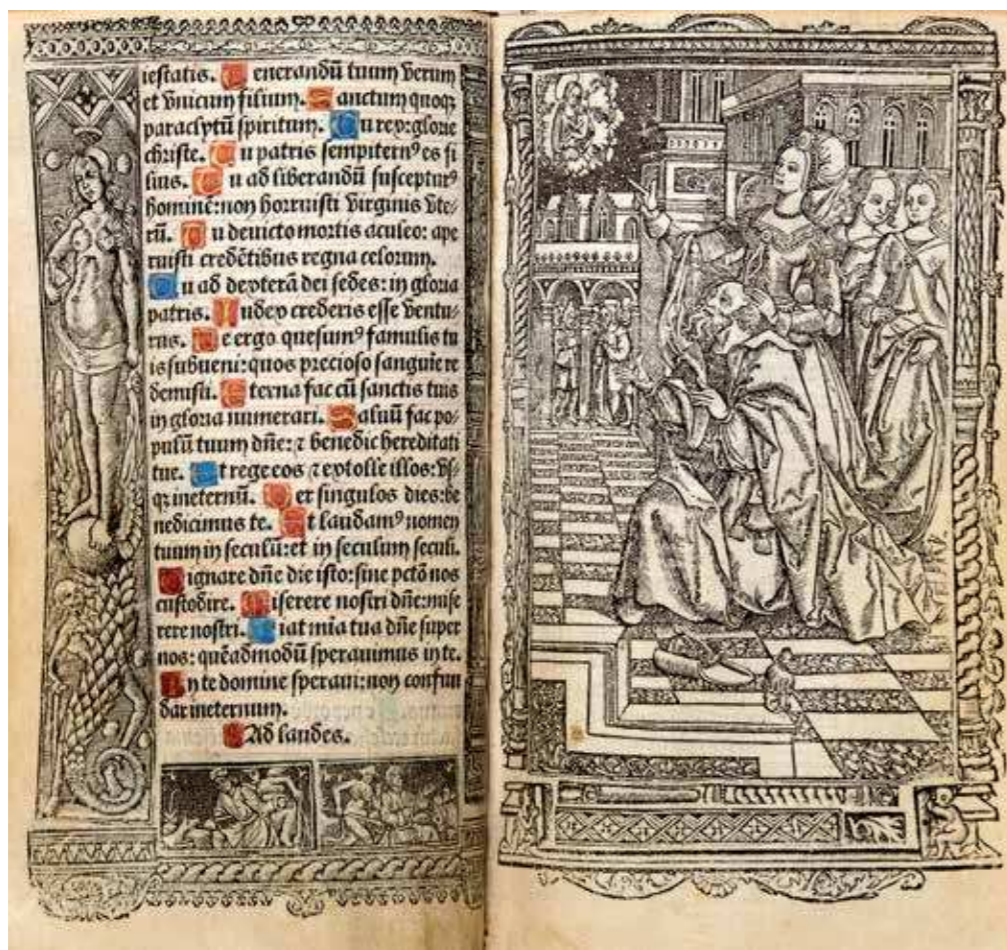 iestatis. Venerandū tuum verum
et vnicum filium. Sanctum quoqꝫ
paraclytū spiritum. Tu rex glorie
christe. Tu patris sempiternꝰ es fi
lius. Tu ad liberandū suscepturꝰ
hominē: non horruisti virginis vte-
rū. Tu deuicto mortis aculeo: ape
ruisti credētibus regna celorum.
Tu ad dexterā dei sedes: in gloria
patris. Iudex crederis esse ventu-
rus. Te ergo quesumꝰ famulis tu
is subueni: quos precioso sanguīe re
demisti. Eterna fac cū sanctis tuis
in gloria numerari. Saluū fac po-
pulū tuum dñe: ⁊ benedic hereditati
tue. Et rege eos ⁊ extolle illos: vs
qꝫ ineternū. Per singulos dies: be
nedicimus te. Et laudamꝰ nomen
tuum in seculū: et in seculum seculi.
Dignare dñe die isto: sine pctō nos
custodire. Miserere nostri dñe: mise
rere nostri. Fiat mīa tua dñe super
nos: quēadmodū sperauimus in te.
In te domine speraui: non confun
dar ineternum.
Ad laudes.